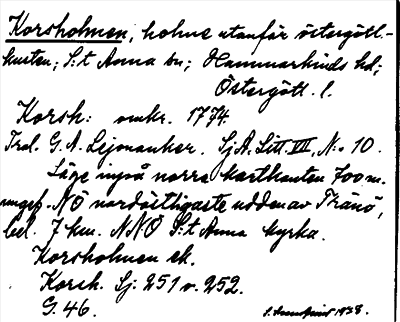 Korsholmen, holme utanför östergötl.-
kusten; S:t Anna sn; Hammarkinds hd;
Östergötl. l.
Korsh: omkr. 1774
Tral. G. A. Lejonanker. Sj.A. Litt VII, N:o 10.
Läge invid norra kartkanten 700 m.
ungef. NÖ nordöstligaste udden av Tränö,
bel. 7 km. NNÖ S:t Anna kyrka.
Korsholmen ek.
Korsh. Sj: 251 v. 252.
G. 46.
1938.